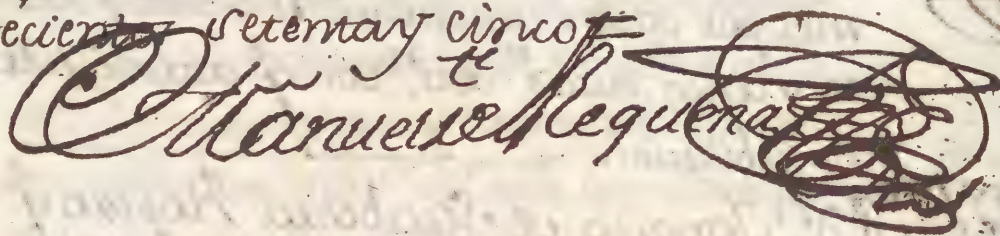 ecientos setenta y cinco
Manuel Vicente Requena